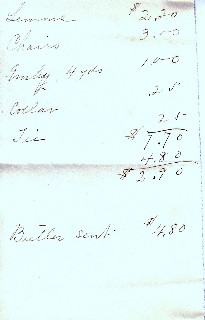 Lemons $2.20
Chairs 3.00
4 yds 1.00
Collar .25
Tie 25
$7.70
4.80
$2.90
Butler sent $4.80